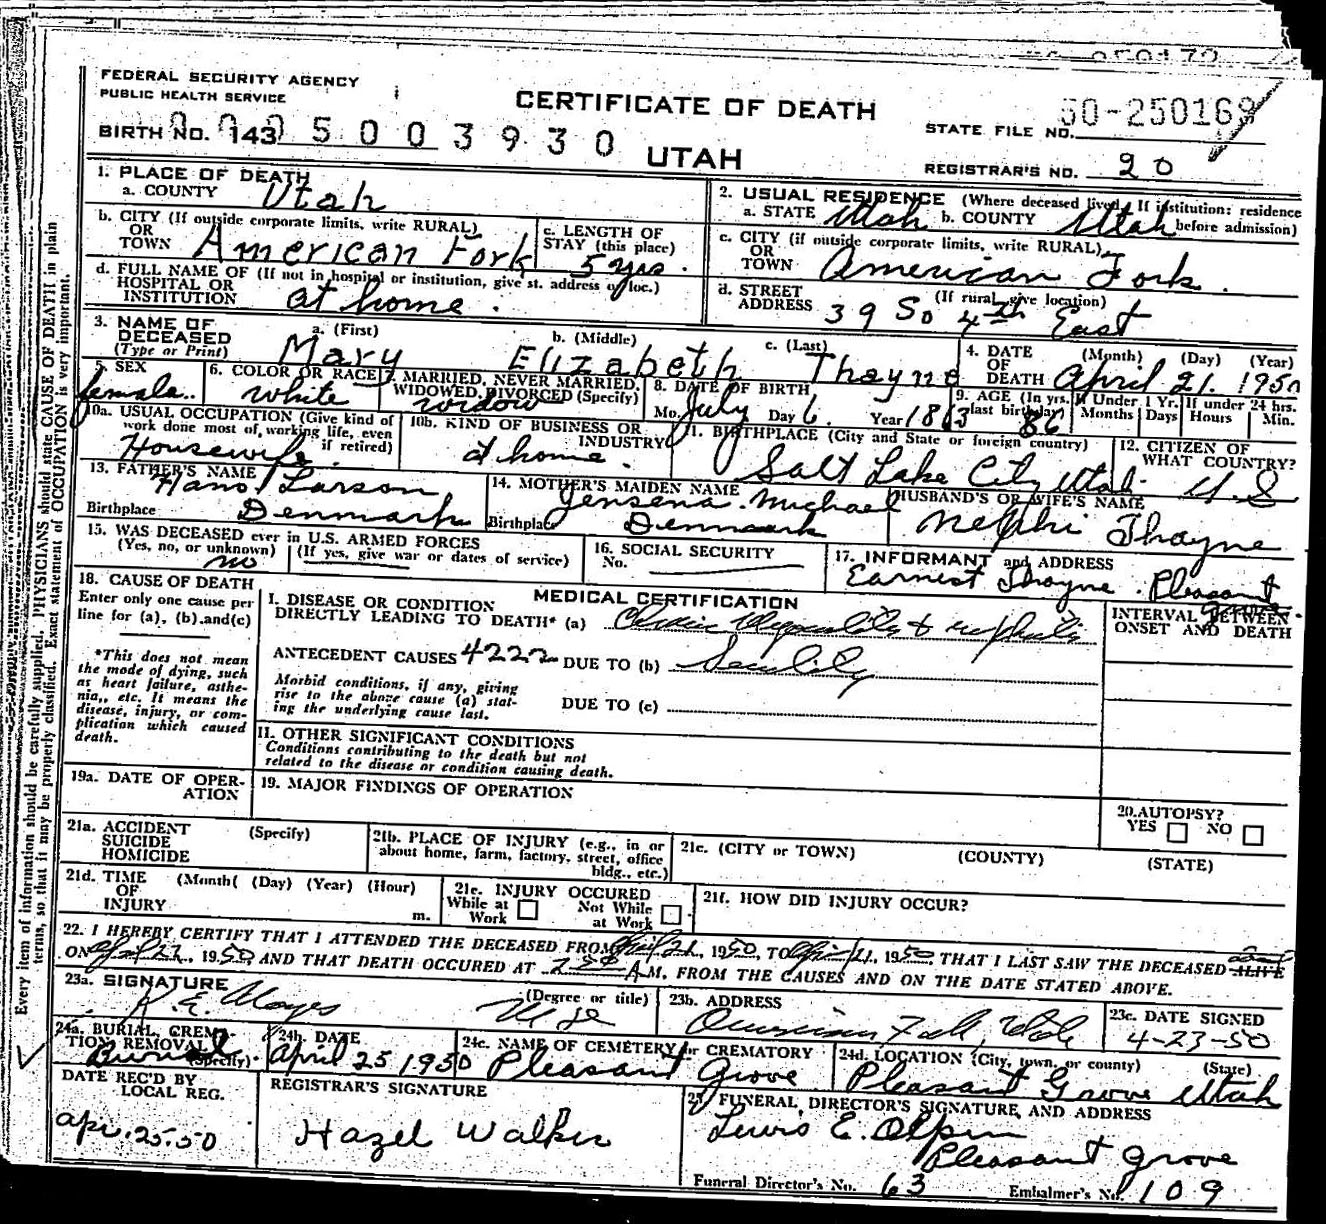 FEDERAL SECURITY AGENCY
PUBLIC HEALTH SERVICE
CERTIFICATE OF DEATH
UTAH
BIRTH NO. 143
5003930
STATE FILE NO. 50-250169
REGISTRAR'S NO. 20
1. PLACE OF DEATH
a. COUNTY Utah
b. CITY (If outside corporate limits, write RURAL)
OR
TOWN American Fork
c. LENGTH OF
STAY (this place)
5 yrs.
d. FULL NAME OF (If not in hospital or institution, give st. address or loc.)
HOSPITAL OR
INSTITUTION at home.
2. USUAL RESIDENCE (Where deceased lived. If institution: residence
before admission)
a. STATE Utah b. COUNTY Utah
c. CITY (if outside corporate limits, write RURAL)
OR
TOWN American Fork.
d. STREET (If rural, give location)
ADDRESS 39 So 4th East
3. NAME OF
DECEASED
(Type or Print)
a. (First) b. (Middle) c. (Last)
Mary Elizabeth Thayne
4. DATE
OF
DEATH
(Month) (Day) (Year)
April 21. 1950
5. SEX
female.
6. COLOR OR RACE
white
7. MARRIED, NEVER MARRIED,
WIDOWED, DIVORCED (Specify)
widow
8. DATE OF BIRTH
Mo. July Day 6. Year 1863
9. AGE (In yrs. last birthday) 86
If Under 1 Yr. Months Days
If under 24 hrs. Hours Min.
10a. USUAL OCCUPATION (Give kind of
work done most of working life, even
if retired)
Housewife.
10b. KIND OF BUSINESS OR
INDUSTRY
at home.
11. BIRTHPLACE (City and State or foreign country)
Salt Lake City Utah.
12. CITIZEN OF
WHAT COUNTRY?
U.S
13. FATHER'S NAME
Hans Larson
Birthplace Denmark
14. MOTHER'S MAIDEN NAME
Jensena Michael
Birthplace Denmark
HUSBAND'S OR WIFE'S NAME
Nephi Thayne
15. WAS DECEASED ever in U.S. ARMED FORCES
(Yes, no, or unknown) (If yes, give war or dates of service)
no
16. SOCIAL SECURITY
No.
17. INFORMANT and ADDRESS
Earnest Thayne. Pleasant
Grove
18. CAUSE OF DEATH
Enter only one cause per
line for (a), (b), and (c)
*This does not mean
the mode of dying, such
as heart failure, asthe-
nia,, etc. It means the
disease, injury, or com-
plication which caused
death.
MEDICAL CERTIFICATION
I. DISEASE OR CONDITION
DIRECTLY LEADING TO DEATH* (a) Chronic Myocarditis & nephritis
ANTECEDENT CAUSES 4222 DUE TO (b) Senility
Morbid conditions, if any, giving
rise to the above cause (a) stat-
ing the underlying cause last.
DUE TO (c)
INTERVAL BETWEEN
ONSET AND DEATH
II. OTHER SIGNIFICANT CONDITIONS
Conditions contributing to the death but not
related to the disease or condition causing death.
19a. DATE OF OPER-
ATION
19. MAJOR FINDINGS OF OPERATION
20. AUTOPSY?
YES NO
21a. ACCIDENT
SUICIDE
HOMICIDE
(Specify)
21b. PLACE OF INJURY (e.g., in or
about home, farm, factory, street, office
bldg., etc.)
21c. (CITY or TOWN) (COUNTY) (STATE)
21d. TIME
OF
INJURY
(Month( (Day) (Year) (Hour)
m.
21e. INJURY OCCURED
While at
Work
Not While
at Work
21f. HOW DID INJURY OCCUR?
22. I HEREBY CERTIFY THAT I ATTENDED THE DECEASED FROM April 21, 1950, TO April 21, 1950 THAT I LAST SAW THE DECEASED ALIVE
ON 1950, AND THAT DEATH OCCURED AT A M. FROM THE CAUSES AND ON THE DATE STATED ABOVE.
23a. SIGNATURE (Degree or title)
23b. ADDRESS
American Fork, Utah
23c. DATE SIGNED
4-23-50
24a. BURIAL, CREMA-
TION, REMOVAL
(Specify)
Burial
24b. DATE
April 25 1950
24c. NAME OF CEMETERY or CREMATORY
Pleasant Grove
24d. LOCATION (City, town, or county) (State)
Pleasant Grove Utah
DATE REC'D BY
LOCAL REG.
apr. 25-50
REGISTRAR'S SIGNATURE
Hazel Walker
25. FUNERAL DIRECTOR'S SIGNATURE, AND ADDRESS
Lewis E. Olpin
Pleasant Grove
Funeral Director's No. 63 Embalmer's No. 109
Every item of information should be carefully supplied. PHYSICIANS should state CAUSE OF DEATH in plain
terms, so that it may be properly classified. Exact statement of OCCUPATION is very important.